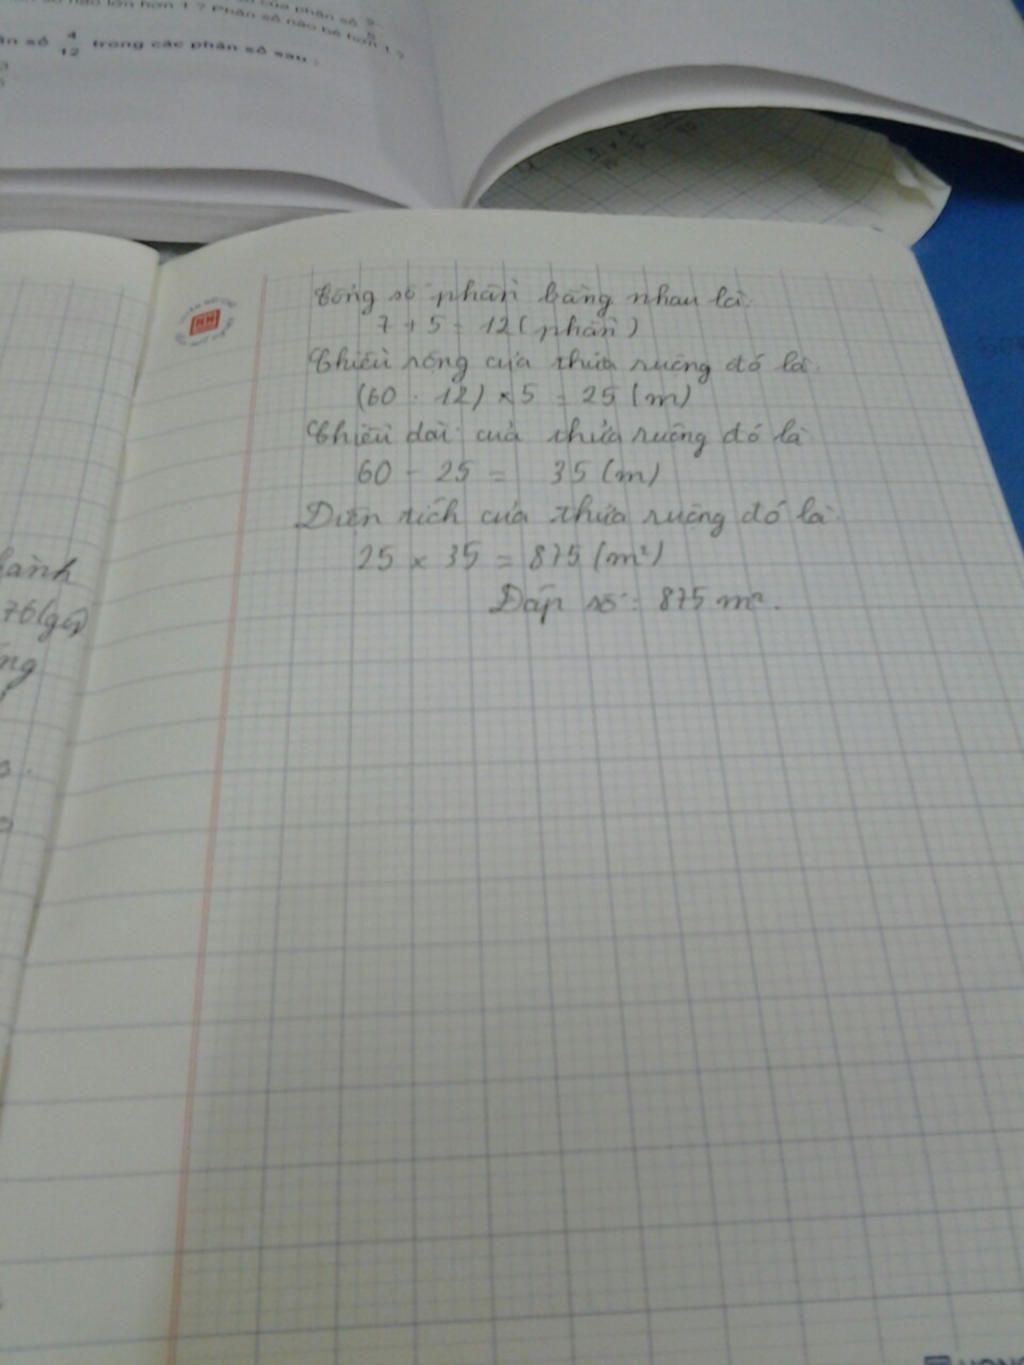 số nào lớn hơn 1 ? Phân số nào bé hơn 1 ?
số 4/12 trong các phân số sau :
Tổng số phần bằng nhau là:
7 + 5 = 12 ( phần )
Chiều rộng của thửa ruộng đó là:
(60 : 12) × 5 = 25 (m)
Chiều dài của thửa ruộng đó là
60 - 25 = 35 (m)
Diện tích của thửa ruộng đó là:
25 × 35 = 875 (m²)
Đáp số : 875 m².
76(